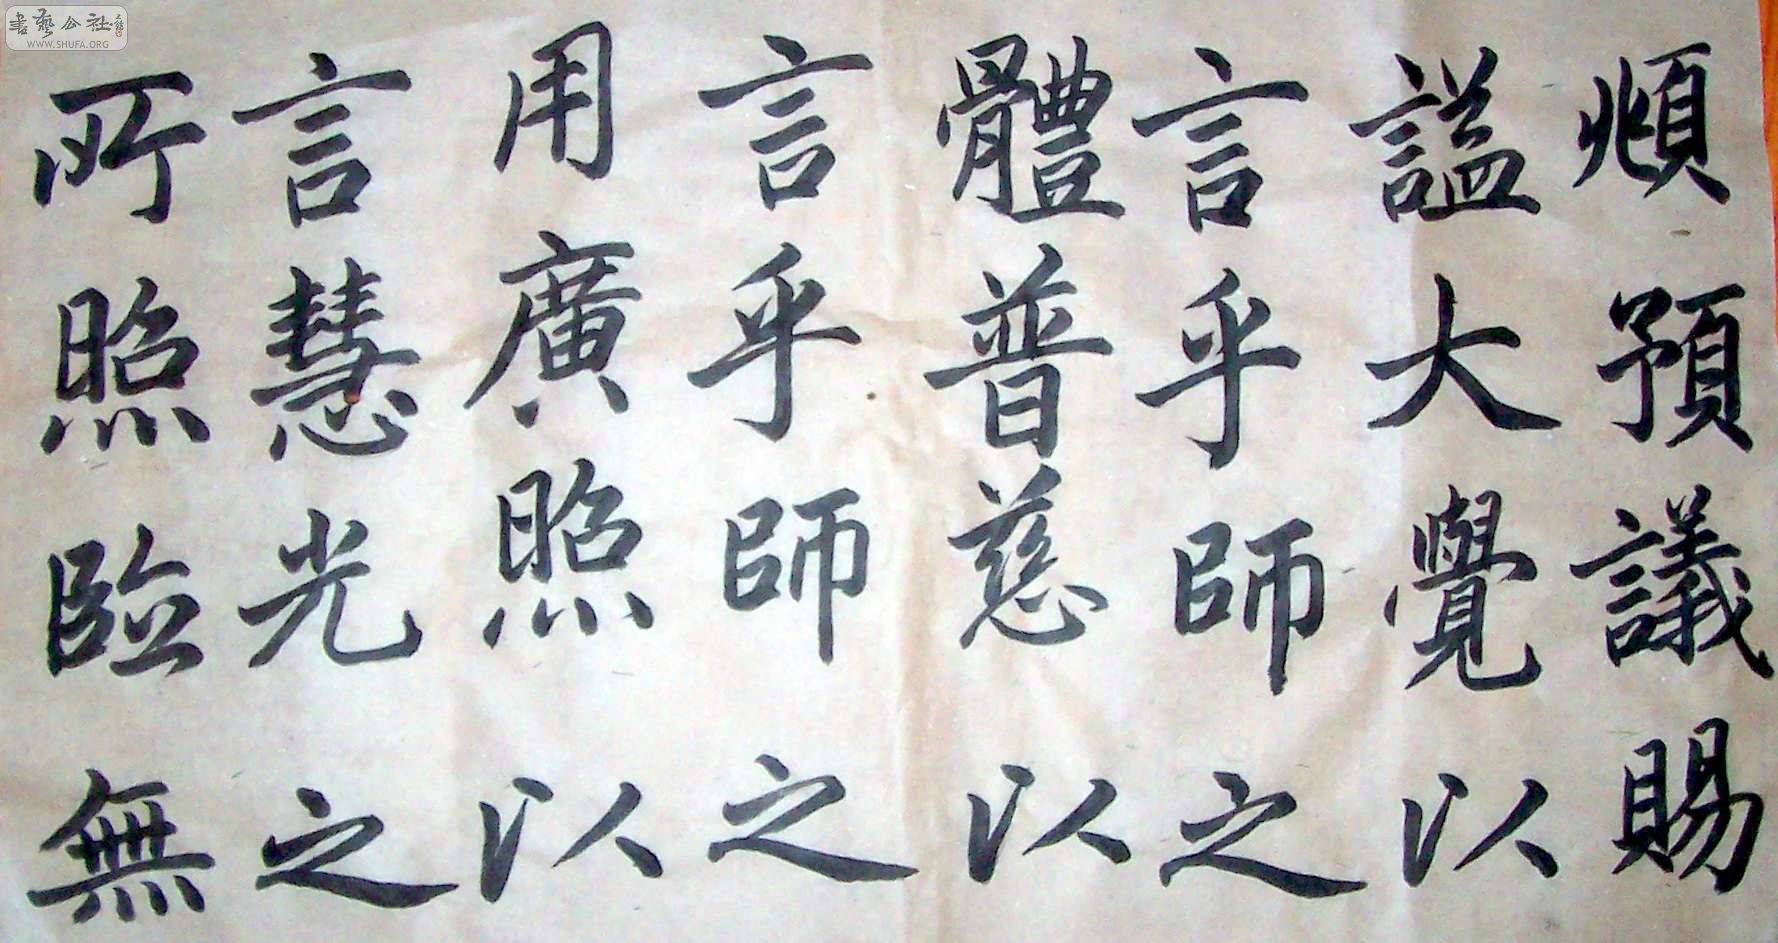 頫預議賜
謚大覺以
言乎師之
體普慈以
言乎師之
用廣照以
言慧光之
所照臨無
書藝公社
WWW.SHUFA.ORG